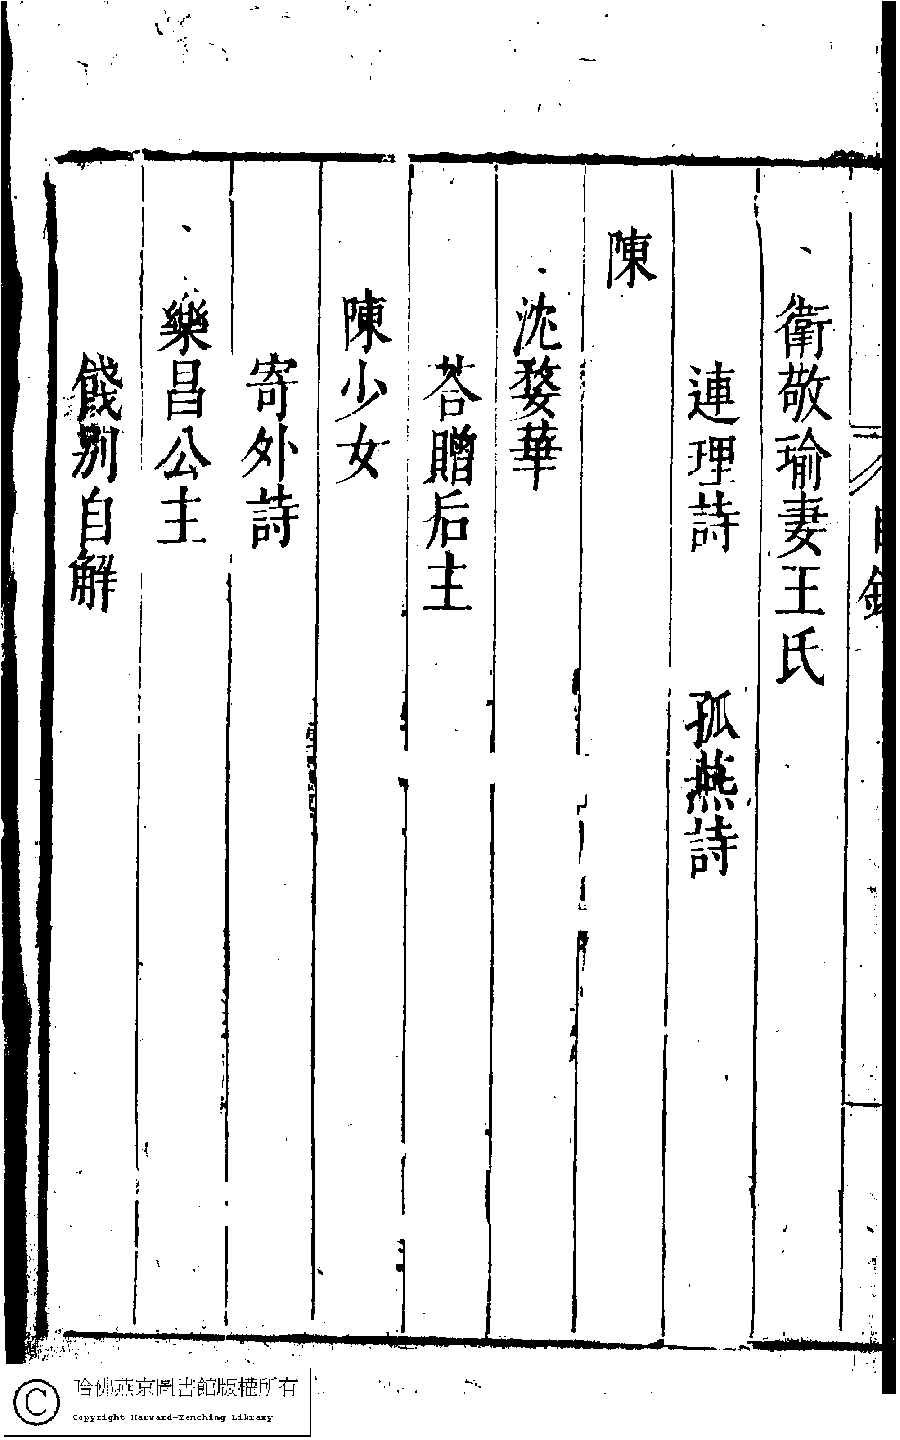 目錄
衛敬瑜妻王氏
連理詩　孤燕詩
陳
沈婺華
荅贈后主
陳少女
寄外詩
樂昌公主
餞別自解
哈佛燕京圖書館版權所有
Copyright Harvard-Yenching Library